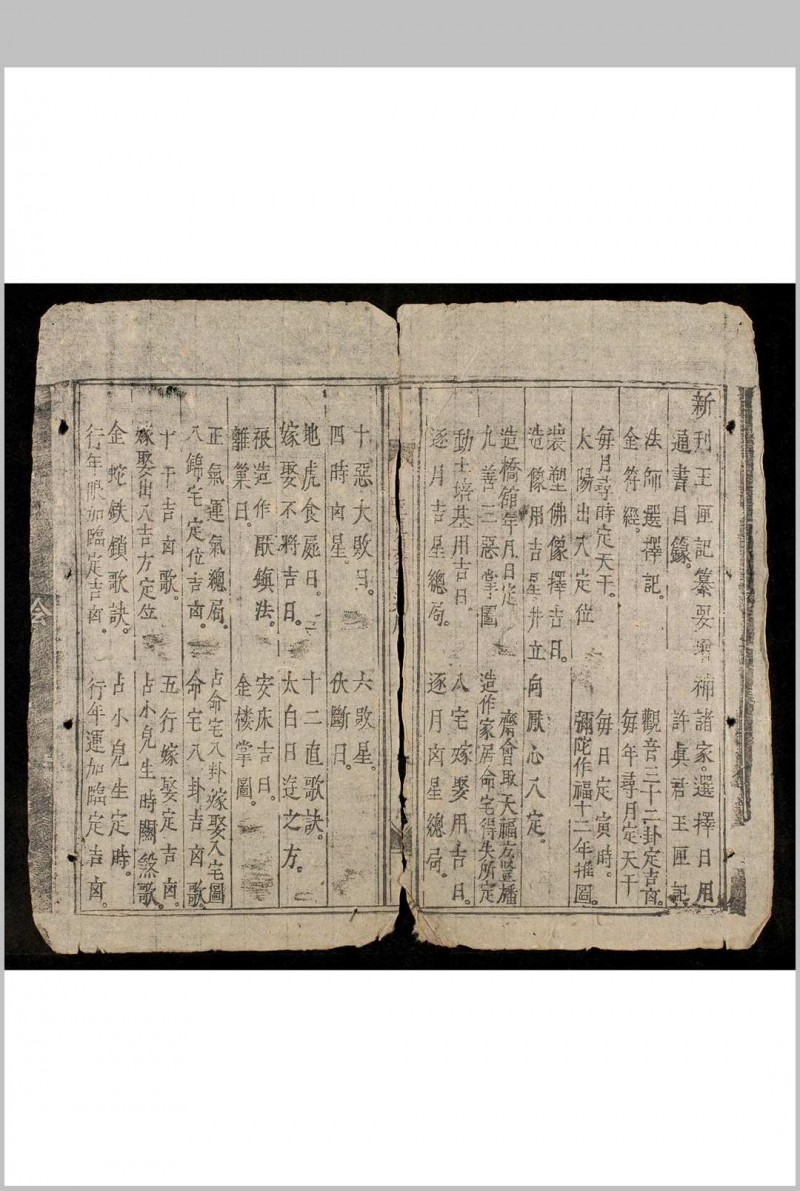 新刋玉匣記纂要增補諸家。選擇日用
通書目錄。 許眞君玉匣記
法師選擇記。 觀音三十二卦定吉凶。
金符經。 每年尋月定天干
每月尋時定天干。 每日定寅時。
太陽出入定位 彌陀作福十二年推圖。
裝塑佛像擇吉日。
造像用吉星并立向厭心人定。
造橋舘年月日定 齋會取天福
九善三惡掌圖 造作家居命宅得失所定
動土培基用吉日。 八宅嫁娶用吉日。
逐月吉星總局。 逐月凶星總局。
十惡大敗日。 六敗星。
四時凶星。 伏斷日。
地虎食屍日。 十二直歌訣。
嫁娶不將吉日。 太白日遊之方。
造作厭鎮法。 安床吉日。
離巢日。 金樓掌圖。
正氣運氣總局。 占命宅八卦嫁娶入宅圖
八錦宅定位吉凶。 命宅八卦吉凶歌。
十干吉凶歌。 五行嫁娶定吉凶。
嫁娶出入吉方定位 占小兒生時關煞歌。
金蛇鉄鎖歌訣。 占小兒生定時。
行年限加臨定吉凶。 行年運加臨定吉凶。